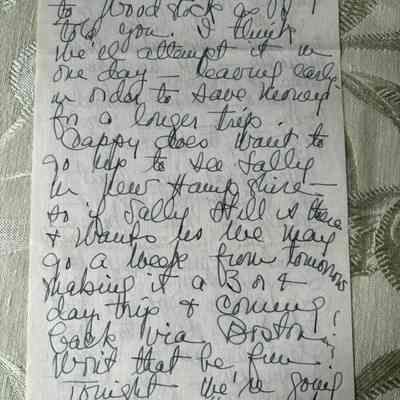 to Woodstock as I
told you. I think
we'll attempt it in
one day – leaving early
in order to save money
for a longer trip.
Pappy does want to
go up to see Sally
in New Hampshire –
so if Sally still is there
& wants us we may
go a week from tomorrow
making it a 3 or 4
day trip & coming
back via Boston!
Won't that be fun!
Tonight we're going